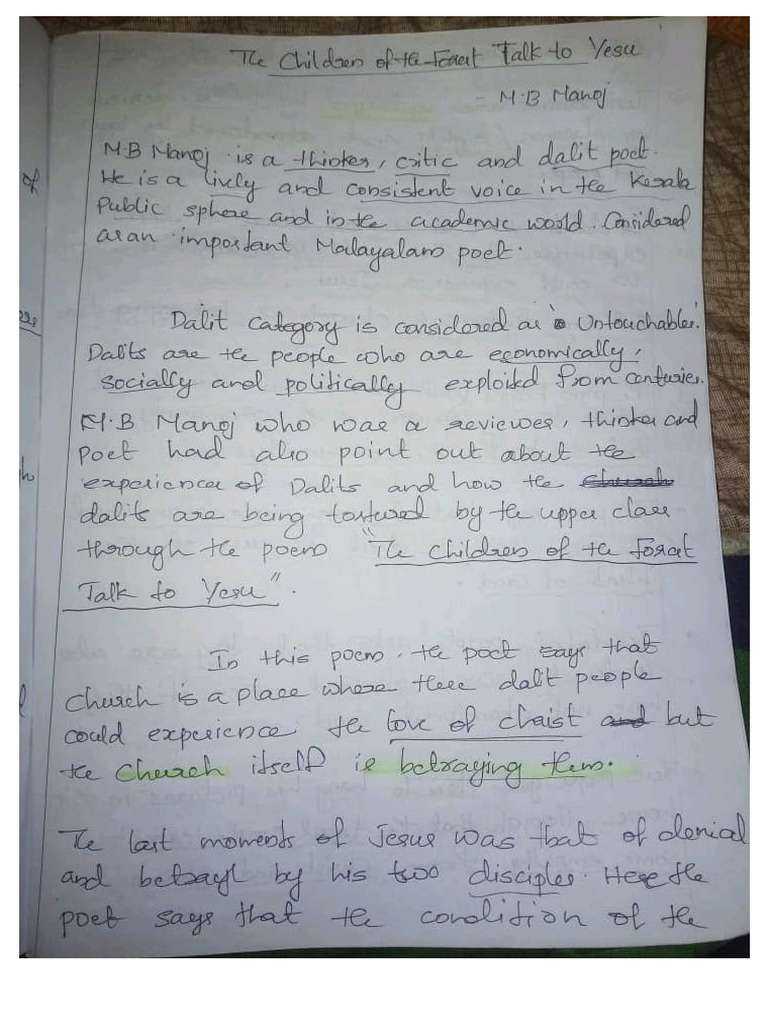 The Children of the Forest Talk to Yesu
- M.B Manoj
M.B Manoj is a thinker, critic and dalit poet.
He is a lively and consistent voice in the Kerala
Public sphere and in the academic world. Considered
as an important Malayalam poet.
Dalit category is considered as 'Untouchables'.
Dalits are the people who are economically,
socially and politically exploited from centuries.
M.B Manoj who was a reviewer, thinker and
poet had also point out about the
experiences of Dalits and how the church
dalits are being tortured by the upper class
through the poem "The children of the forest
Talk to Yesu".
In this poem, the poet says that
church is a place where these dalit people
could experience the love of christ and but
the church itself is betraying them.
The last moments of Jesus was that of denial
and betrayl by his two disciples. Here the
poet says that the condition of the
of